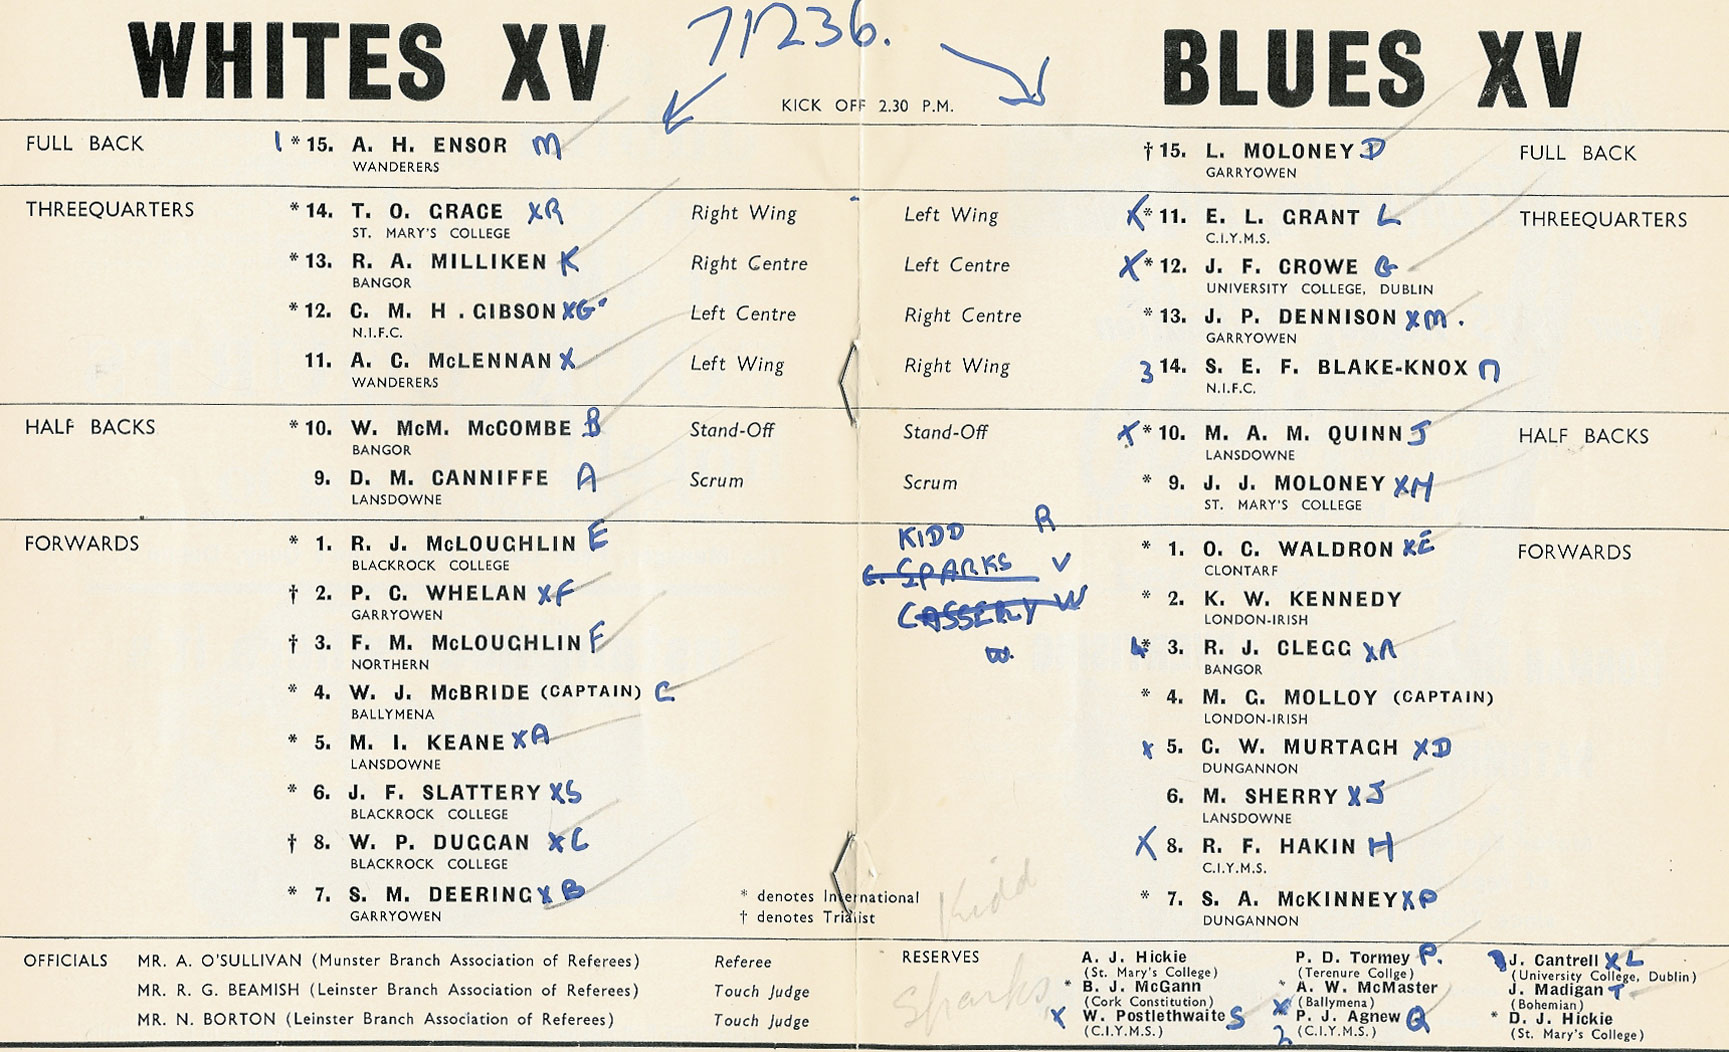 71236.
WHITES XV
BLUES XV
KICK OFF 2.30 P.M.
FULL BACK 1 * 15. A. H. ENSOR M
WANDERERS
† 15. L. MOLONEY D FULL BACK
GARRYOWEN
THREEQUARTERS * 14. T. O. GRACE XR Right Wing
ST. MARY'S COLLEGE
Left Wing X * 11. E. L. GRANT L THREEQUARTERS
C.I.Y.M.S.
* 13. R. A. MILLIKEN K Right Centre
BANGOR
Left Centre X * 12. J. F. CROWE G
UNIVERSITY COLLEGE, DUBLIN
* 12. C. M. H . GIBSON XG Left Centre
N.I.F.C.
Right Centre * 13. J. P. DENNISON XM .
GARRYOWEN
11. A. C. McLENNAN X Left Wing
WANDERERS
Right Wing 3 14. S. E. F. BLAKE-KNOX n
N.I.F.C.
HALF BACKS * 10. W. McM. McCOMBE B Stand-Off
BANGOR
Stand-Off X * 10. M. A. M. QUINN J HALF BACKS
LANSDOWNE
9. D. M. CANNIFFE A Scrum
LANSDOWNE
Scrum * 9. J. J. MOLONEY XH
ST. MARY'S COLLEGE
KIDD R
G. SPARKS V
CASSERLY W
W.
FORWARDS * 1. R. J. McLOUGHLIN E
BLACKROCK COLLEGE
* 1. O. C. WALDRON XE FORWARDS
CLONTARF
† 2. P. C. WHELAN XF
GARRYOWEN
* 2. K. W. KENNEDY
LONDON-IRISH
† 3. F. M. McLOUGHLIN F
NORTHERN
4 * 3. R. J. CLEGG XA
BANGOR
* 4. W. J. McBRIDE (CAPTAIN) C
BALLYMENA
* 4. M. G. MOLLOY (CAPTAIN)
LONDON-IRISH
* 5. M. I. KEANE XA
LANSDOWNE
X 5. C. W. MURTAGH XD
DUNGANNON
* 6. J. F. SLATTERY XS
BLACKROCK COLLEGE
6. M. SHERRY XJ
LANSDOWNE
† 8. W. P. DUGGAN XC
BLACKROCK COLLEGE
X 8. R. F. HAKIN H
C.I.Y.M.S.
* 7. S. M. DEERING XB
GARRYOWEN
* 7. S. A. McKINNEY XP
DUNGANNON
* denotes International
† denotes Trialist
Kidd
Sparks
OFFICIALS MR. A. O'SULLIVAN (Munster Branch Association of Referees) Referee
MR. R. G. BEAMISH (Leinster Branch Association of Referees) Touch Judge
MR. N. BORTON (Leinster Branch Association of Referees) Touch Judge
RESERVES A. J. Hickie P. D. Tormey P. J. Cantrell XL
(St. Mary's College) (Terenure Collge) (University College, Dublin)
* B. J. McGann * A. W. McMaster J. Madigan T
(Cork Constitution) (Ballymena) (Bohemian)
X W. Postlethwaite S X P. J. Agnew Q * D. J. Hickie
(C.I.Y.M.S.) 2 (C.I.Y.M.S.) (St. Mary's College)